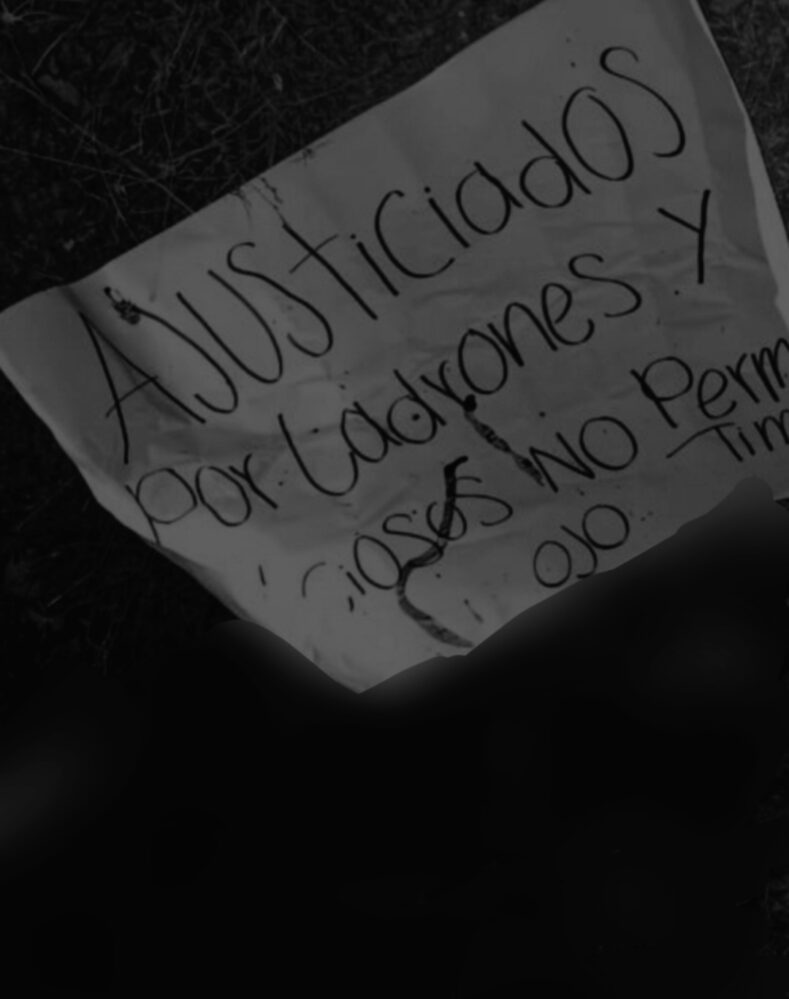 AJUSTICIADOS
POR LADRONES Y
NO PERM
TIM
OJO